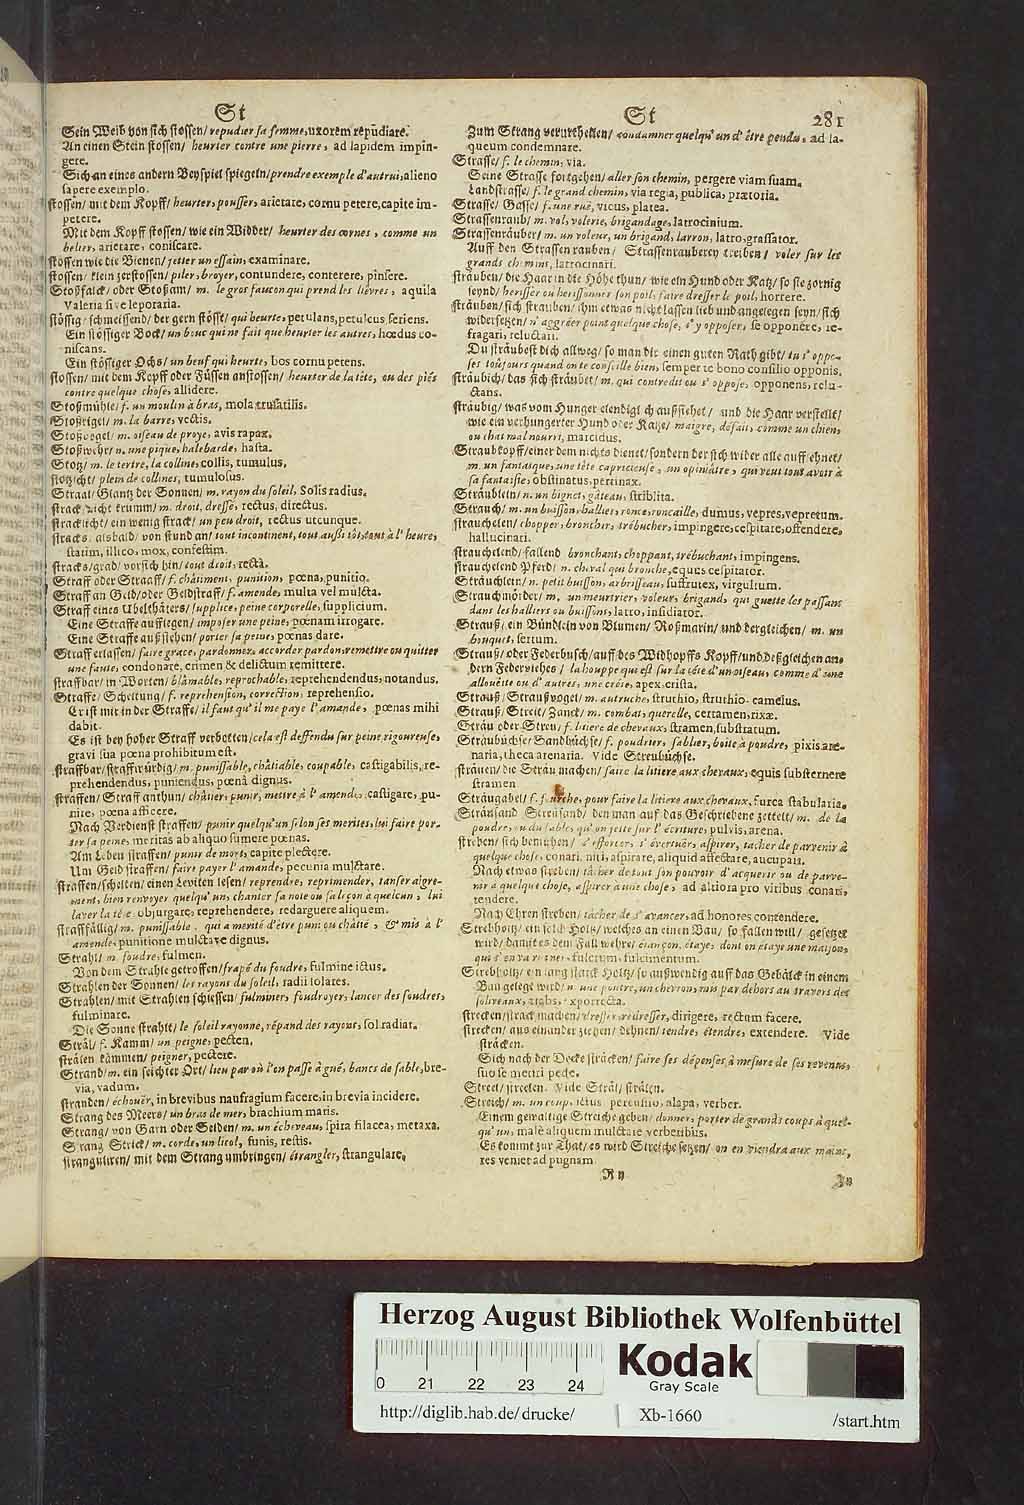 St
Sein Weib von sich stossen/ repudier sa femme, uxorem repudiare.
An einen Stein stossen/ heurter contre une pierre, ad lapidem impin-
gere.
Sich an eines andern Beyspiel spiegeln/ prendre exemple d'autrui, alieno
sapere exemplo.
stossen/ mit dem Kopff/ heurter, pousser, arietare, cornu petere, capite im-
petere.
Mit dem Kopff stossen/ wie ein Widder/ heurter des cornes, comme un
belier, arietare, coniscare.
stossen wie die Bienen/ jetter un essain, examinare.
stossen/ klein zerstossen/ piler, broyer, contundere, conterere, pinsere.
Stoßfalck/ oder Stoßam/ m. le gros faucon qui prend les lièvres, aquila
Valeria sive leporaria.
stössig/ schmeissend/ der gern stösst/ qui heurte, petulans, petulcus feriens.
Ein stössiger Bock/ un bouc qui ne fait que heurter les autres, hœdus co-
niscans.
Ein stössiger Ochs/ un beuf qui heurte, bos cornu petens.
stossen/ mit dem Kopff oder Füssen anstossen/ heurter de la tête, ou des piés
contre quelque chose, allidere.
Stoßmühle/ f. un moulin à bras, mola trusatilis.
Stoßrigel/ m. la barre, vectis.
Stoßvogel/ m. oiseau de proye, avis rapax.
Stoßwehr/ n. une pique, halebarde, hasta.
Stotz/ m. le tertre, la colline, collis, tumulus.
stotzicht/ plein de collines, tumulosus.
Straal/ Glantz der Sonnen/ m. rayon du soleil, Solis radius.
strack/ nicht krumm/ m. droit, dressé, rectus, directus.
strackicht/ ein wenig strack/ un peu droit, rectus utcunque.
stracks/ alsbald/ von stund an/ tout incontinent, tout aussi tôt, tout à l'heure,
statim, illico, mox, confestim.
stracks/ grad/ vorsich hin/ tout droit, rectà.
Straff oder Straaff/ f. châtiment, punition, pœna, punitio.
Straff an Geld/ oder Geldstraff/ f. amende, multa vel mulcta.
Straff eines Ubelthäters/ supplice, peine corporelle, supplicium.
Eine Straffe aufflegen/ imposer une peine, pœnam irrogare.
Eine Straffe außstehen/ porter sa peine, pœnas dare.
Straff erlassen/ faire grace, pardonner, accorder pardon, remettre ou quitter
une faute, condonare, crimen & delictum remittere.
straffbar/ in Worten/ blâmable, reprochable, reprehendendus, notandus.
Straffe/ Scheltung/ f. reprehension, correction, reprehensio.
Er ist mir in der Straffe/ il faut qu'il me paye l'amande, pœnas mihi
dabit.
Es ist bey hoher Straff verbotten/ cela est deffendu sur peine rigoureuse,
gravi sua pœna prohibitum est.
straffbar/ straffwürdig/ m. punissable, châtiable, coupable, castigabilis, re-
prehendendus, puniendus, pœnâ dignus.
straffen/ Straff anthun/ châtier, punir, mettre à l'amende, castigare, pu-
nire, pœna afficere.
Nach Verdienst straffen/ punir quelqu'un selon ses merites, lui faire por-
ter sa peine, meritas ab aliquo sumere pœnas.
Am Leben straffen/ punir de mort, capite plectere.
Um Geld straffen/ faire payer l'amande, pecunia mulctare.
straffen/ schelten/ einen Leviten lesen/ reprendre, reprimender, tanser aigre-
ment, bien renvoyer quelqu'un, chanter sa note ou sa leçon à quelcun, lui
laver la tête, objurgare, reprehendere, redarguere aliquem.
straffällig/ m. punissable, qui a merité d'être puni ou châtié, & mis à l'
amende, punitione mulctave dignus.
Strahl/ m. foudre, fulmen.
Von dem Strahle getroffen/ frapé du foudre, fulmine ictus.
Strahlen der Sonnen/ les rayons du soleil, radii solares.
Strahlen/ mit Strahlen schiessen/ fulminer, foudroyer, lancer des foudres,
fulminare.
Die Sonne strahlt/ le soleil rayonne, répand des rayons, sol radiat.
Sträl/ f. Kamm/ un peigne, pecten.
strälen/ kämmen/ peigner, pectere.
Strand/ m. ein seichter Ort/ lieu par où l'on passe à gué, bancs de sable, bre-
via, vadum.
stranden/ échouër, in brevibus naufragium facere, in brevia incidere.
Strang des Meers/ un bras de mer, brachium maris.
Strang/ von Garn oder Seiden/ m. un écheveau, spira filacea, metaxa.
Strang/ Strick/ m. corde, un licol, funis, restis.
stranguliren/ mit dem Strang umbringen/ étrangler, strangulare.
St 281
Zum Strang verurtheilen/ condamner quelqu'un d'être pendu, ad la-
queum condemnare.
Strasse/ f. le chemin, via.
Seine Strasse fortgehen/ aller son chemin, pergere viam suam.
Landstrasse/ f. le grand chemin, via regia, publica, prætoria.
Strasse/ Gasse/ f. une ruë, vicus, platea.
Strassenraub/ m. vol, volerie, brigandage, latrocinium.
Strassenräuber/ m. un voleur, un brigand, larron, latro, grassator.
Auff den Strassen rauben/ Strassenrauberey treiben/ voler sur les
grands chemins, latrocinari.
sträuben/ die Haar in die Höhe thun/ wie ein Hund oder Katz/ so sie zornig
seynd/ herisser ou herissonner son poil, faire dresser le poil, horrere.
sträuben/ sich sträuben/ ihm etwas nicht lassen lieb und angelegen seyn/ sich
widersetzen/ n'aggréer point quelque chose, s'y opposer, se opponere, re-
fragari, reluctari.
Du sträubest dich allweg/ so man dir einen guten Rath gibt/ tu s'oppo-
ses toûjours quand on te conseille bien, semper te bono consilio opponis.
sträubich/ das sich sträubet/ m. qui contredit ou s'oppose, opponens, relu-
ctans.
sträubig/ was vom Hunger elendiglich außsiehet/ und die Haar verstellt/
wie ein verhungerter Hund oder Katze/ maigre, défait, comme un chien,
ou chat mal nourri, marcidus.
Straubkopff/ einer dem nichts dienet/ sondern der sich wider alle aufflehnet/
m. un fantasque, une tête capricieuse, un opiniâtre, qui veut tout avoir à
sa fantaisie, obstinatus, pertinax.
Sträublein/ n. un bignet, gâteau, striblita.
Strauch/ m. un buisson, hallier, ronce, roncaille, dumus, vepres, vepretum.
strauchelen/ chopper, broncher, trébucher, impingere, cespitare, offendere,
hallucinari.
strauchelend/ fallend bronchant, choppant, trébuchant, impingens.
strauchelend Pferd/ n. cheval qui bronche, equus cespitator.
Sträuchlein/ n. petit buisson, arbrisseau, suffrutex, virgultum.
Strauchmörder/ m. un meurtrier, voleur, brigand, qui guette les passans
dans les halliers ou buissons, latro, insidiator.
Strauß/ ein Bündlein von Blumen/ Roßmarin/ und dergleichen/ m. un
bouquet, sertum.
Strauß/ oder Federbusch/ auff des Widhopffs Kopff/ und deßgleichen an-
dern Federviehes/ la houppe qui est sur la tête d'un oiseau, comme d'une
allouëtte ou d'autres, une crête, apex crista.
Strauß/ Straußvogel/ m. autruche, struthio, struthio-camelus.
Strauß/ Streit/ Zanck/ m. combat, querelle, certamen, rixæ.
Sträu oder Streu/ f. litiere de chevaux, stramen, substratum.
Sträubüchse/ Sandbüchse/ f. poudrier, sablier, boite à poudre, pixis are-
naria, theca arenaria. Vide Streubüchse.
sträuen/ die Sträu machen/ faire la litiere aux chevaux, equis substernere
stramen
Sträugabel/ f. fourche, pour faire la litiere aux chevaux, furca stabularia.
Sträusand/ Streusand/ den man auf das Geschriebene zettelt/ m. de la
poudre, ou du sable, qu'on jette sur l'écriture, pulvis, arena.
streben/ sich bemühen/ s'efforcer, s'évertuër, aspirer, tacher de parvenir à
quelque chose, conari, niti, aspirare, aliquid affectare, aucupari.
Nach etwas streben/ tâcher de tout son pouvoir d'acquerir ou de parve-
nir à quelque chose, aspirer à une chose, ad altiora pro viribus conari,
tendere.
Nach Ehren streben/ tâcher de s'avancer, ad honores contendere.
Strebholtz/ ein solch Holtz/ welches an einen Bau/ so fallen will/ gesetzet
wird/ damit es dem Fall wehre/ étançon, étaye, dont on étaye une maison,
qui s'en va ruiner, fulcrum, fulcimentum.
Strebholtz/ ein lang starck Holtz/ so außwendig auff das Gebälck in einem
Bau gelegt wird/ n. une poutre, un chevron, mis par dehors au travers des
soliveaux, trabs, exporrecta.
strecken/ strack machen/ dresser, redresser, dirigere, rectum facere.
strecken/ aus einander ziehen/ dehnen/ tendre, étendre, extendere. Vide
sträcken.
Sich nach der Decke sträcken/ faire ses dépenses à mesure de ses revenus,
suo se metiri pede.
Streel/ streelen. Vide Sträl/ strälen.
Streich/ m. un coup, ictus percussio, alapa, verber.
Einem gewaltige Streiche geben/ donner, porter de grands coups à quel-
qu'un, malè aliquem mulctare verberibus.
Es kommt zur That/ es wird Streiche setzen/ on en viendra aux mains,
res veniet ad pugnam
N n Jn
Herzog August Bibliothek Wolfenbüttel
0 21 22 23 24
Kodak
Gray Scale
http://diglib.hab.de/drucke/ Xb-1660 /start.htm